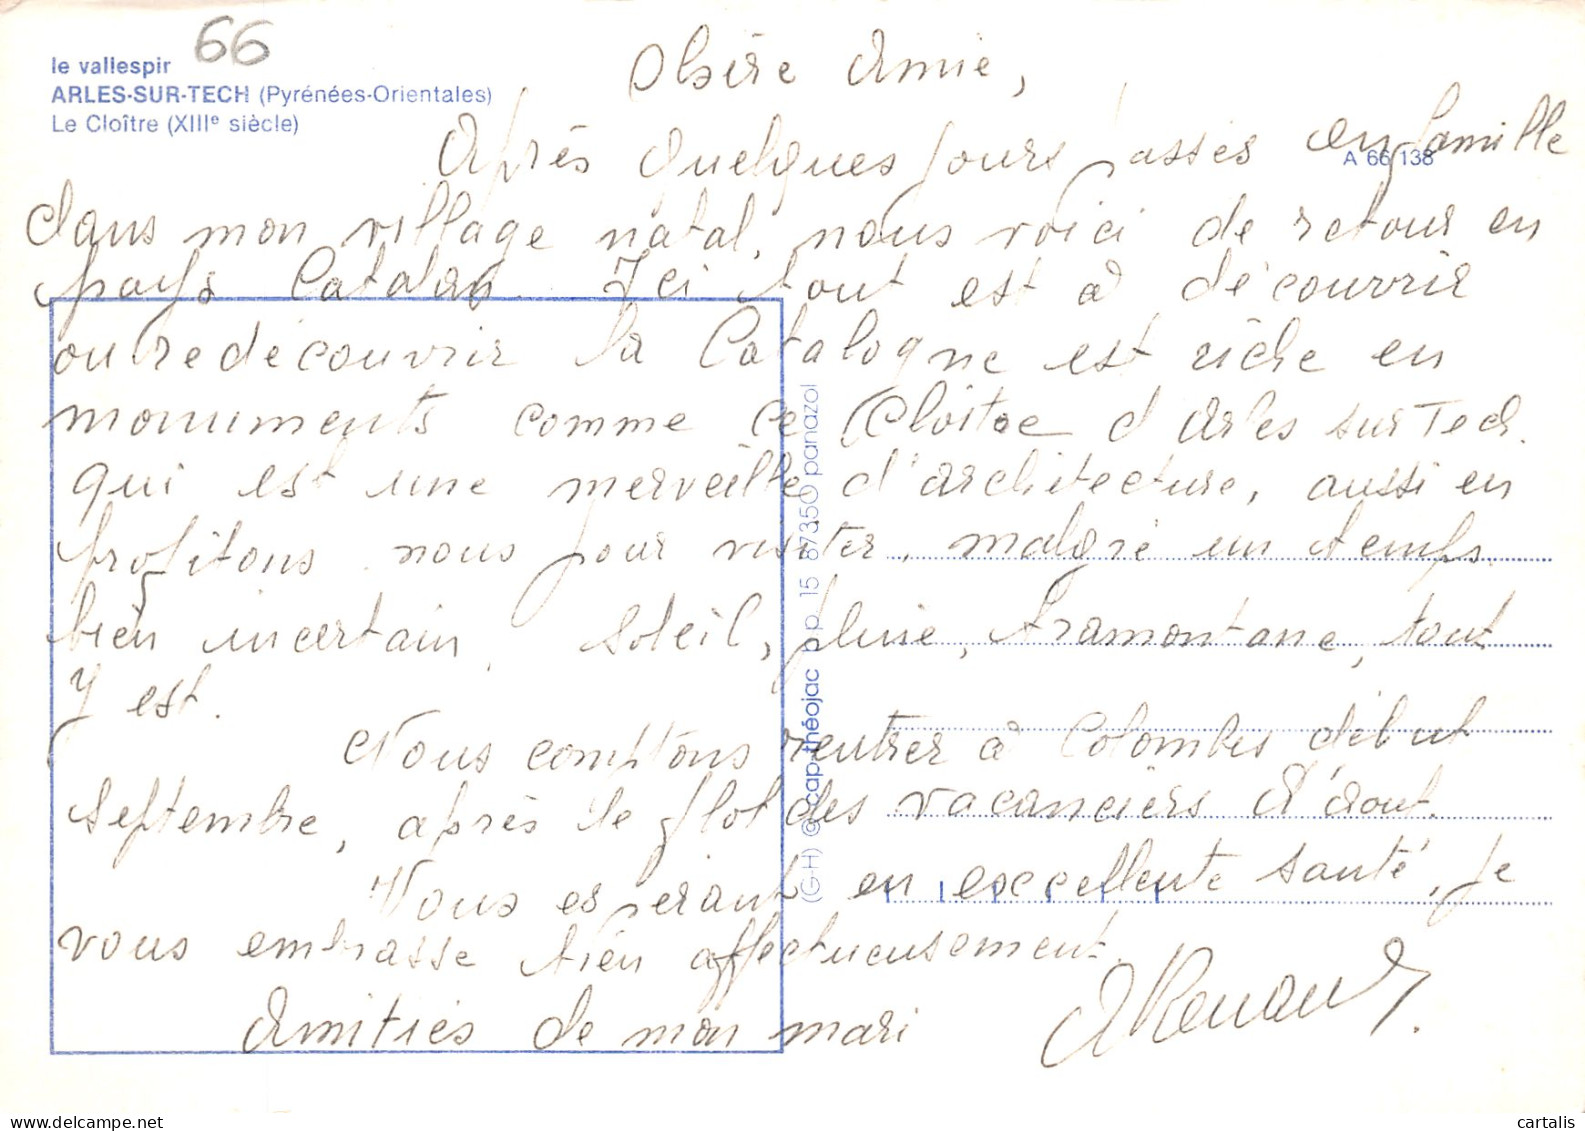 66
le vallespir
ARLES-SUR-TECH (Pyrénées-Orientales)
Le Cloître (XIIIe siècle)
A 66 138
Chère Amie,
Après quelques jours passés en famille
dans mon village natal, nous voici de retour en
pays Catalan. Ici tout est à découvrir
ou redécouvrir la Catalogne est riche en
monuments comme ce Cloitre d'Arles sur Tech.
qui est une merveille d'architecture, aussi en
profitons nous pour visiter, malgré un temps
bien incertain, soleil, pluie, tramontane, tout
y est.
Nous comptons rentrer à Colombes début
septembre, après le flot des vacanciers d'août.
Vous espérant en excellente santé, je
vous embrasse bien affectueusement.
Amitiés de mon mari
(G-H) © cap-théojac b.p. 15 87350 panazol
www.delcampe.net
cartalis